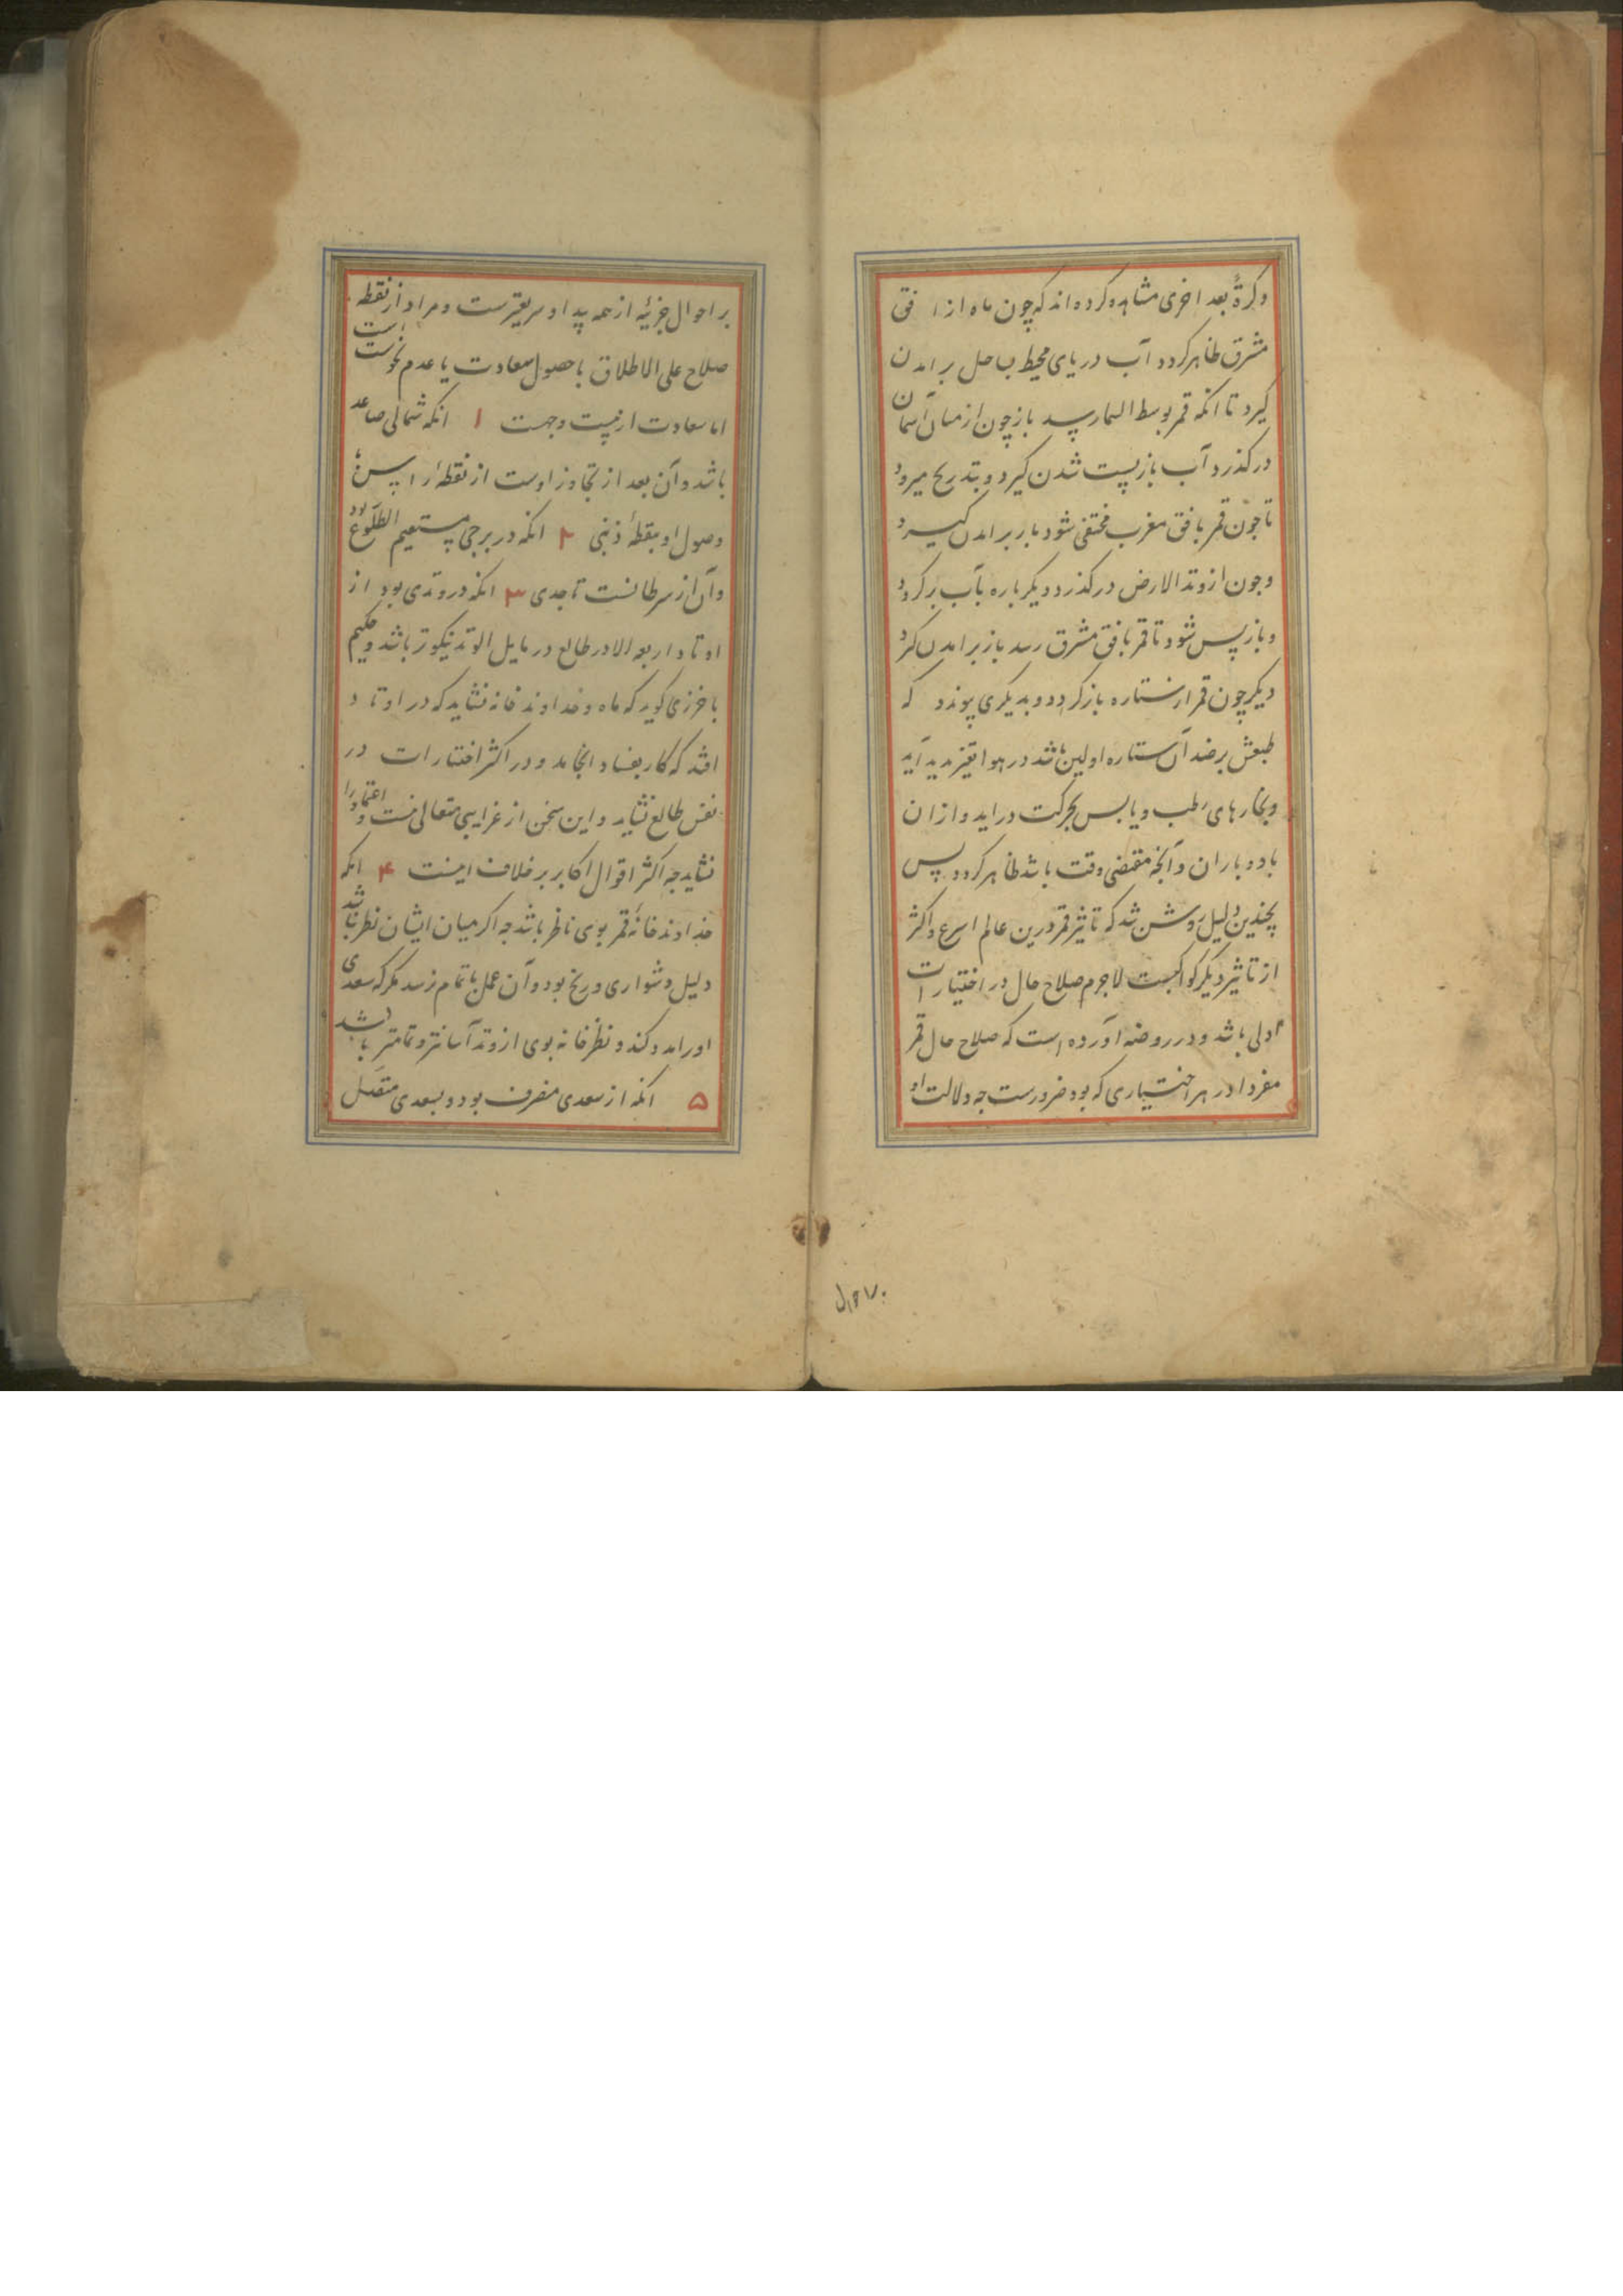 وکرةً بعد اخری مشاهده کرده‌اند که چون ماه از افق
مشرق ظاهر کردد آب دریای محیط بساحل برامدن
کیرد تا انکه قمر بوسط السما رسد باز چون از میان آسمان
درکذرد آب باز پست شدن کیرد و بتدریج میرود
تا چون قمر بافق مغرب مختفی شود باز برامدن کیرد
و چون از وتد الارض درکذرد دیکر باره آب برکردد
و باز پس شود تا قمر بافق مشرق رسد باز برامدن کیرد
دیکر چون قمر از ستاره بازکردد و بدیکری پیوندد که
طبعش بر ضد آن ستاره اولین باشد در هوا تغیر پدید آید
و بخارهای رطب و یابس بحرکت دراید و ازان
باد و باران و آنچه مقتضی وقت باشد ظاهر کردد پس
بچندین دلیل روشن شد که تاثیر قمر درین عالم اسرع و اکثر
از تاثیر دیکر کواکبست لاجرم صلاح حال در اختیارات
اولی باشد و در روضه آورده است که صلاح حال قمر
مفردا در هر اختیاری که بود ضرورست چه دلالت او
۱۶۷۰
بر احوال جزئیه از همه پیدا و سریعترست و مراد از نقطه
صلاح علی الاطلاق یا حصول سعادت یا عدم نحوست است
اما سعادت از بیست وجهست ۱ انکه شمالی صاعد
باشد و آن بعد از تجاوز اوست از نقطهٔ راسی تا
وصول او بنقطهٔ ذنبی ۲ انکه در برجی مستقیم الطلوع بود
و آن از سرطانست تا جدی ۳ انکه در وتدی بود از
اوتاد اربعه الا در طالع در مایل الوتد نیکوتر باشد و حکیم
باخرزی کوید که ماه و خداوند خانه نشاید که در اوتاد
افتد که کار بفساد انجامد و در اکثر اختیارات در
نفس طالع نشاید و این سخن از غرایبی متعالی نیست و اعتماد را
نشاید چه اکثر اقوال اکابر بر خلاف اینست ۴ انکه
خداوند خانهٔ قمر بوی ناظر باشد چه اکر میان ایشان نظر نباشد
دلیل دشواری و رنج بود و آن عمل باتمام نرسد مکر که سعدی
اورا مدد کند و نظر خانه بوی از وتد آسانتر و تمامتر باشد
۵ انکه از سعدی منصرف بود و بسعدی متصل